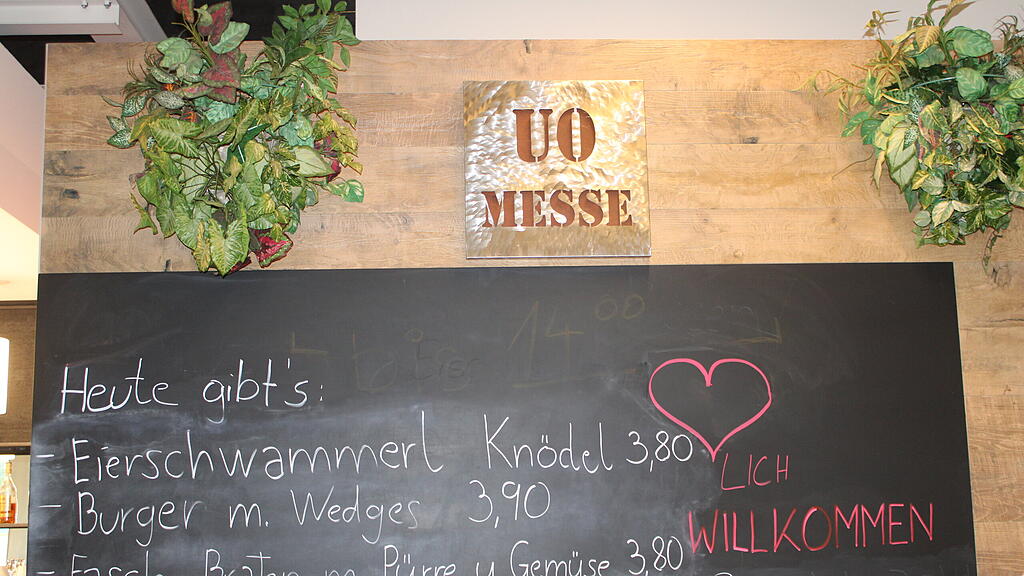 UO
MESSE
bis 14 00
Heute gibt's:
- Eierschwammerl Knödel 3,80
- Burger m. Wedges 3,90
- Fasch. Braten m. Pürre u Gemüse 3,80
LICH
WILLKOMMEN